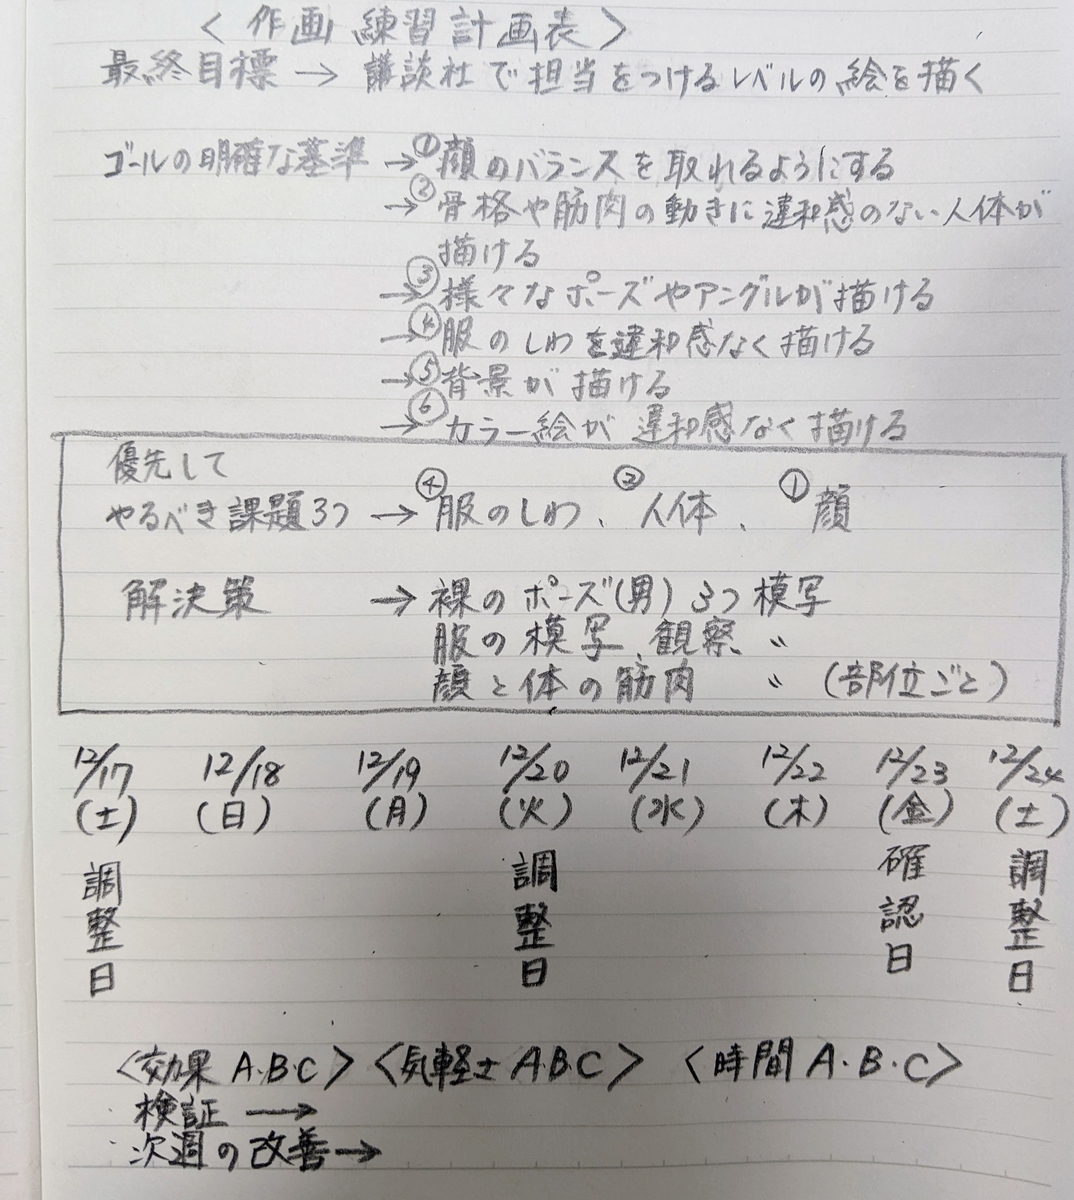 〈作画練習計画表〉
最終目標 → 講談社で担当をつけるレベルの絵を描く
ゴールの明確な基準 →①顔のバランスを取れるようにする
→②骨格や筋肉の動きに違和感のない人体が
描ける
→③様々なポーズやアングルが描ける
→④服のしわを違和感なく描ける
→⑤背景が描ける
→⑥カラー絵が違和感なく描ける
優先して
やるべき課題3つ → ④服のしわ、②人体、①顔
解決策 → 裸のポーズ(男)3つ模写
服の模写、観察 〃
顔と体の筋肉 〃 (部位ごと)
12/17 12/18 12/19 12/20 12/21 12/22 12/23 12/24
(土) (日) (月) (火) (水) (木) (金) (土)
調整日 調整日 確認日 調整日
〈効果 A.B.C〉〈気軽さ A.B.C〉 〈時間 A.B.C〉
検証 →
次週の改善→